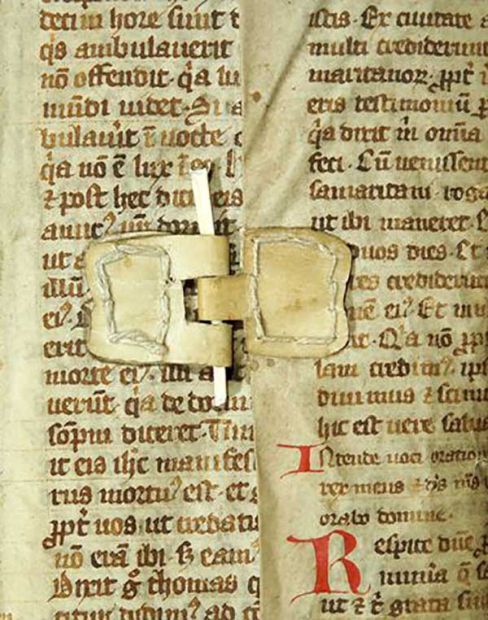 decim hore sunt d
qis ambulauerit
nō offendit· qa lu
mūdi uidet· Si a
bulauit ī nocte o
qa nō ē lux
⁊ post hec dicit eis
ut a
illū
ei⁹·
erit
morte ei⁹· illi
uerūt· qa de dormi
sōpni diceret· Tūc
it eis ihc manifes
rus mortu⁹ est· et g
ꝓpt uos· ut credatis
nō erā ibi· sꝫ eam⁹
Dixit g thomas q
titur didim⁹ ad co
istis· Ex ciuitate a
multi crediderunt
maritanoꝝ· ꝓpt u
eris testimoniū p
qa dixit m omīa
feci· Cū uenissent
samaritani· roga
ut ibi maneret· E
duos dies· Et
res crediderūt
nē ei⁹· Et mu
Qa nō ꝓpt
lam credim⁹· ips
diuimus ⁊ scimu
hic est uere salua
Intende uoci oration
rex meus ⁊ ds ms
orabo domine·
Respice dne
ut ⁊ t grata sint